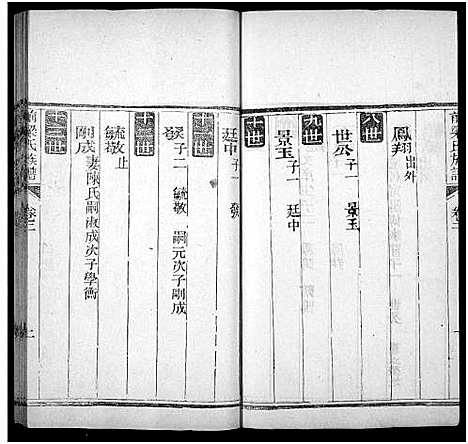 八世
鳳翔出外
九世
世公子一 景玉
景玉子一 廷中
十世
廷中子一
十一世
子二 毓敬 嗣元次子剛成
十二世
毓敬止
剛成妻陳氏嗣淑成次子學衡
十三世
前梁氏族譜 卷二